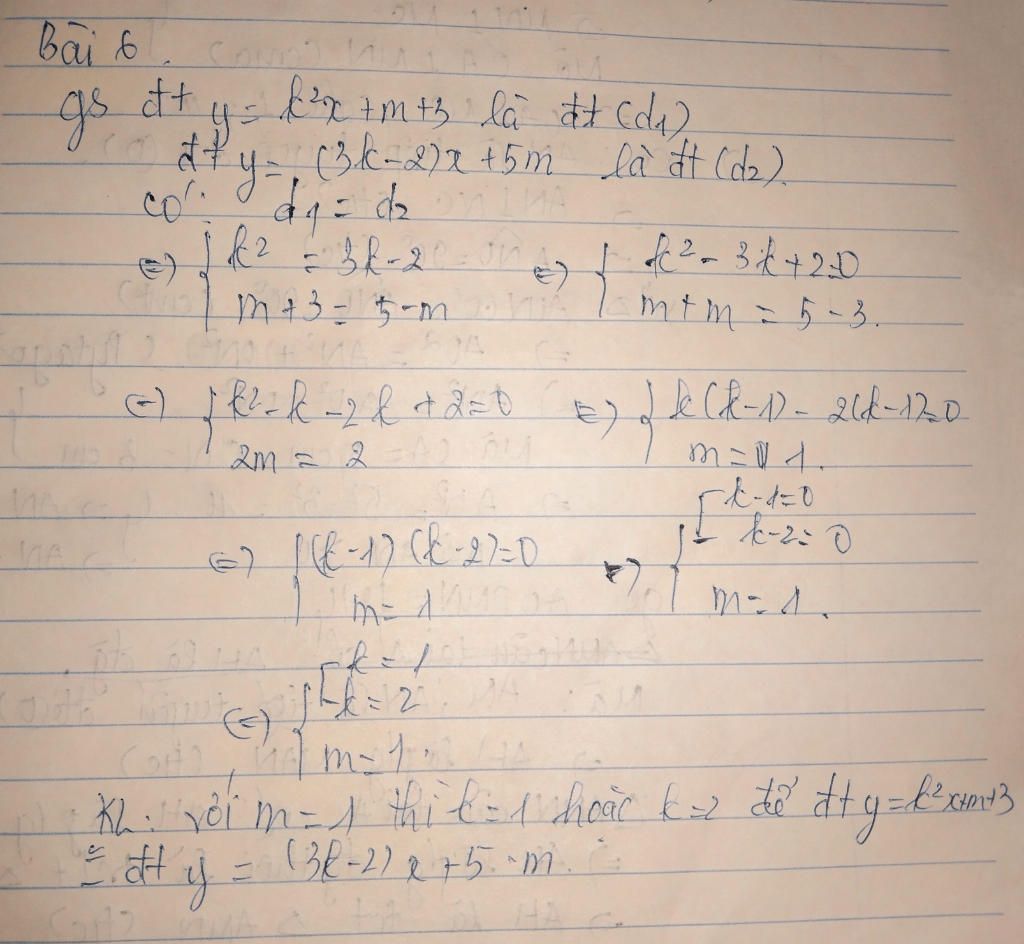 Bài 6.
gs đt y = k²x + m + 3 là đt (d1)
đt y = (3k-2)x + 5m là đt (d2).
có: d1 = d2
<=> { k² = 3k-2 <=> { k² - 3k + 2=0
m + 3 = 5 - m m + m = 5 - 3.
<=> { k² - k - 2k + 2 = 0 <=> { k(k-1) - 2(k-1)=0
2m = 2 m = 1.
[ k-1=0
<=> { (k-1)(k-2)=0 <=> { k-2=0
m = 1 m = 1.
[ k = 1
<=> { k = 2
m = 1.
KL: với m = 1 thì k = 1 hoặc k = 2 để đt y = k²x+m+3
≡ đt y = (3k-2)x + 5 - m.